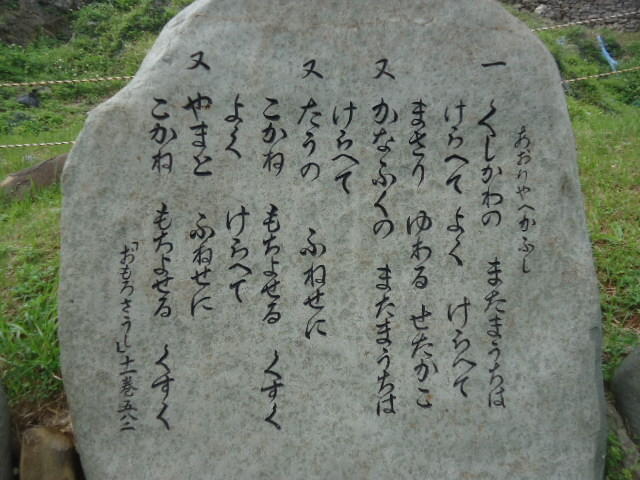 あおりやへかふし
一 くしかわの またまうちは
けらへて よく けらへて
まさり ゆわる せたかこ
又 かなふくの またまうちは
けらへて
又 たうの ふねせに
こかね もちよせる くすく
よく けらへて
又 やまと ふねせに
こかね もちよせる くすく
「おもろさうし」十一巻五八二